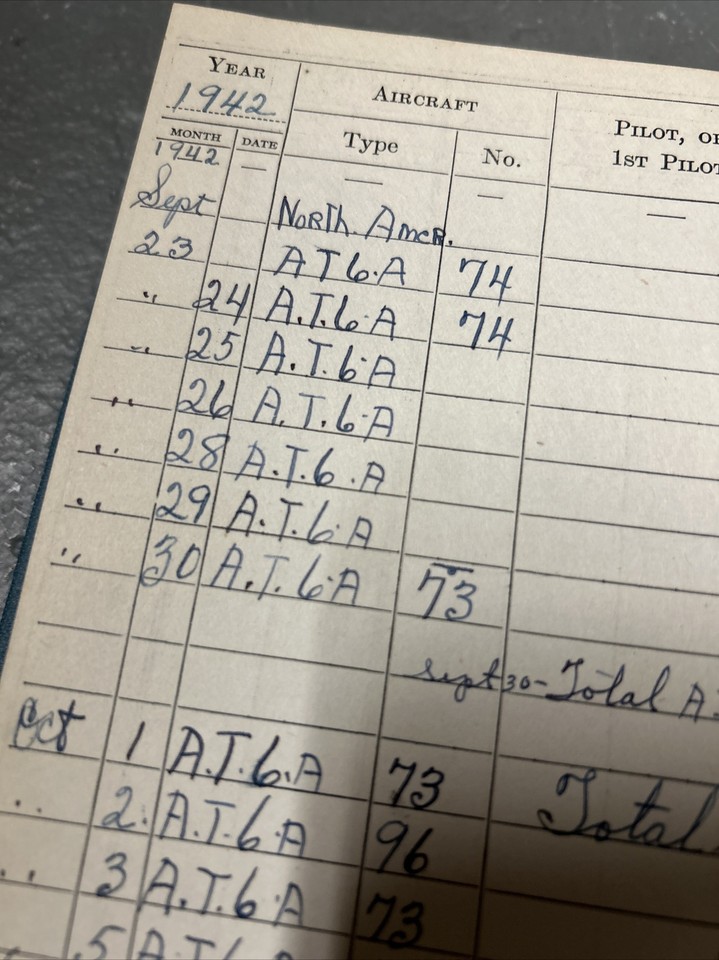 YEAR AIRCRAFT PILOT, OR
1942
MONTH DATE Type No. 1ST PILOT
1942 — — — —
Sept North. Amer.
23 AT6.A 74
" 24 A.T.6.A 74
" 25 A.T.6.A
" 26 A.T.6.A
" 28 A.T.6.A
" 29 A.T.6.A
" 30 A.T.6.A 73
Sept 30- Total A.
Oct 1 A.T.6.A 73 Total
" 2. A.T.6.A 96
" 3 A.T.6.A 73
" 5 A.T.6.A